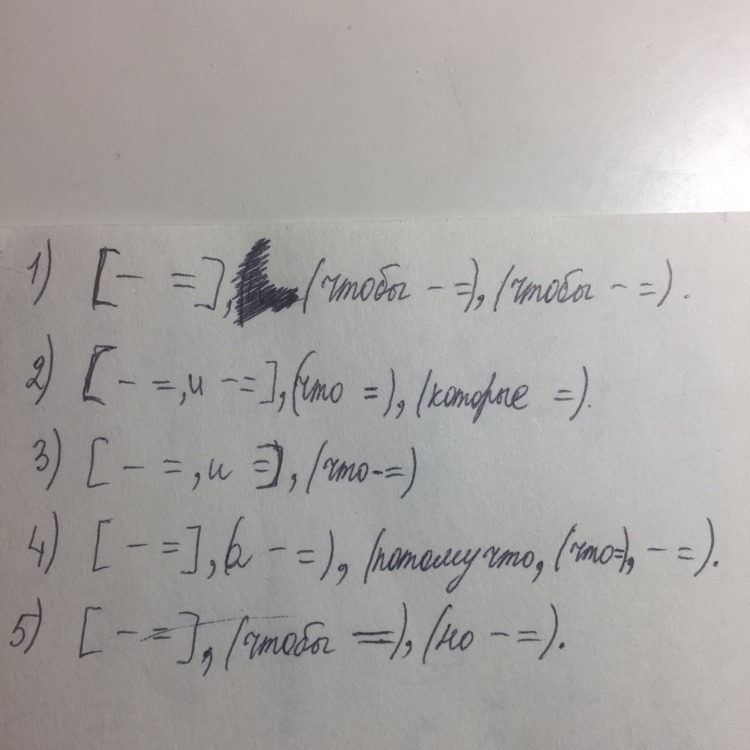 1) [- =], (чтобы - =), (чтобы - =).
2) [- =, и - =], (что =), (которые =).
3) [- =, и =], (что - =)
4) [- =], (а - =), (потому что, (что =), - =).
5) [- =], (чтобы =), (но - =).